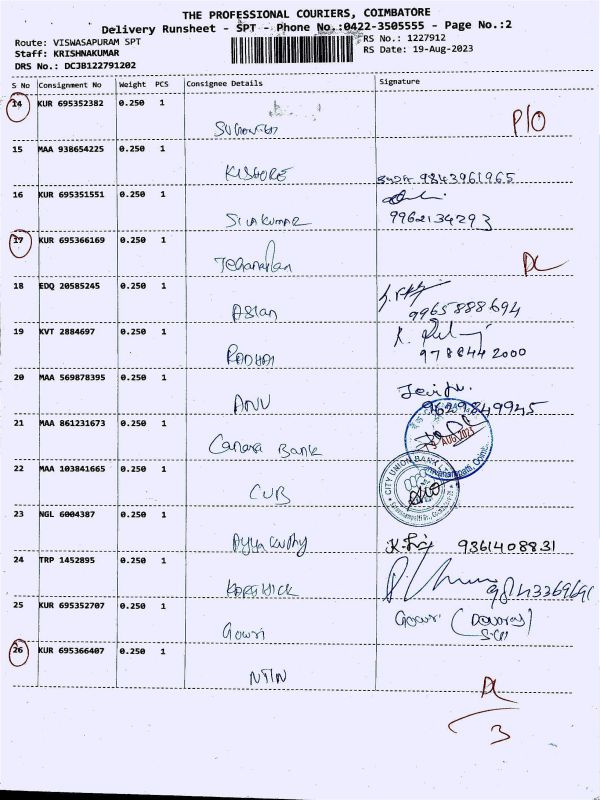 THE PROFESSIONAL COURIERS, COIMBATORE
Delivery Runsheet - SPT - Phone No.:0422-3505555 - Page No.:2
Route: VISWASAPURAM SPT
Staff: KRISHNAKUMAR
DRS No.: DCJB122791202
RS No.: 1227912
RS Date: 19-Aug-2023
S No Consignment No Weight PCS Consignee Details Signature
14 KUR 695352382 0.250 1
P/O
15 MAA 938654225 0.250 1
KISHORE 9843961965
16 KUR 695351551 0.250 1
Sivakumar 9962134293
17 KUR 695366169 0.250 1
DL
18 EDQ 20585245 0.250 1
Aslan 9965888694
19 KVT 2884697 0.250 1
RADHAI 9788442000
20 MAA 569878395 0.250 1
ANU 9629849945
21 MAA 861231673 0.250 1
Canara Bank AUG 2023
22 MAA 103841665 0.250 1
CUB CITY UNION BANK
23 NGL 6004387 0.250 1
9361408831
24 TRP 1452895 0.250 1
KARTHICK 9843369691
25 KUR 695352707 0.250 1
Gowri Gowri
26 KUR 695366407 0.250 1
NTIN
DL
3